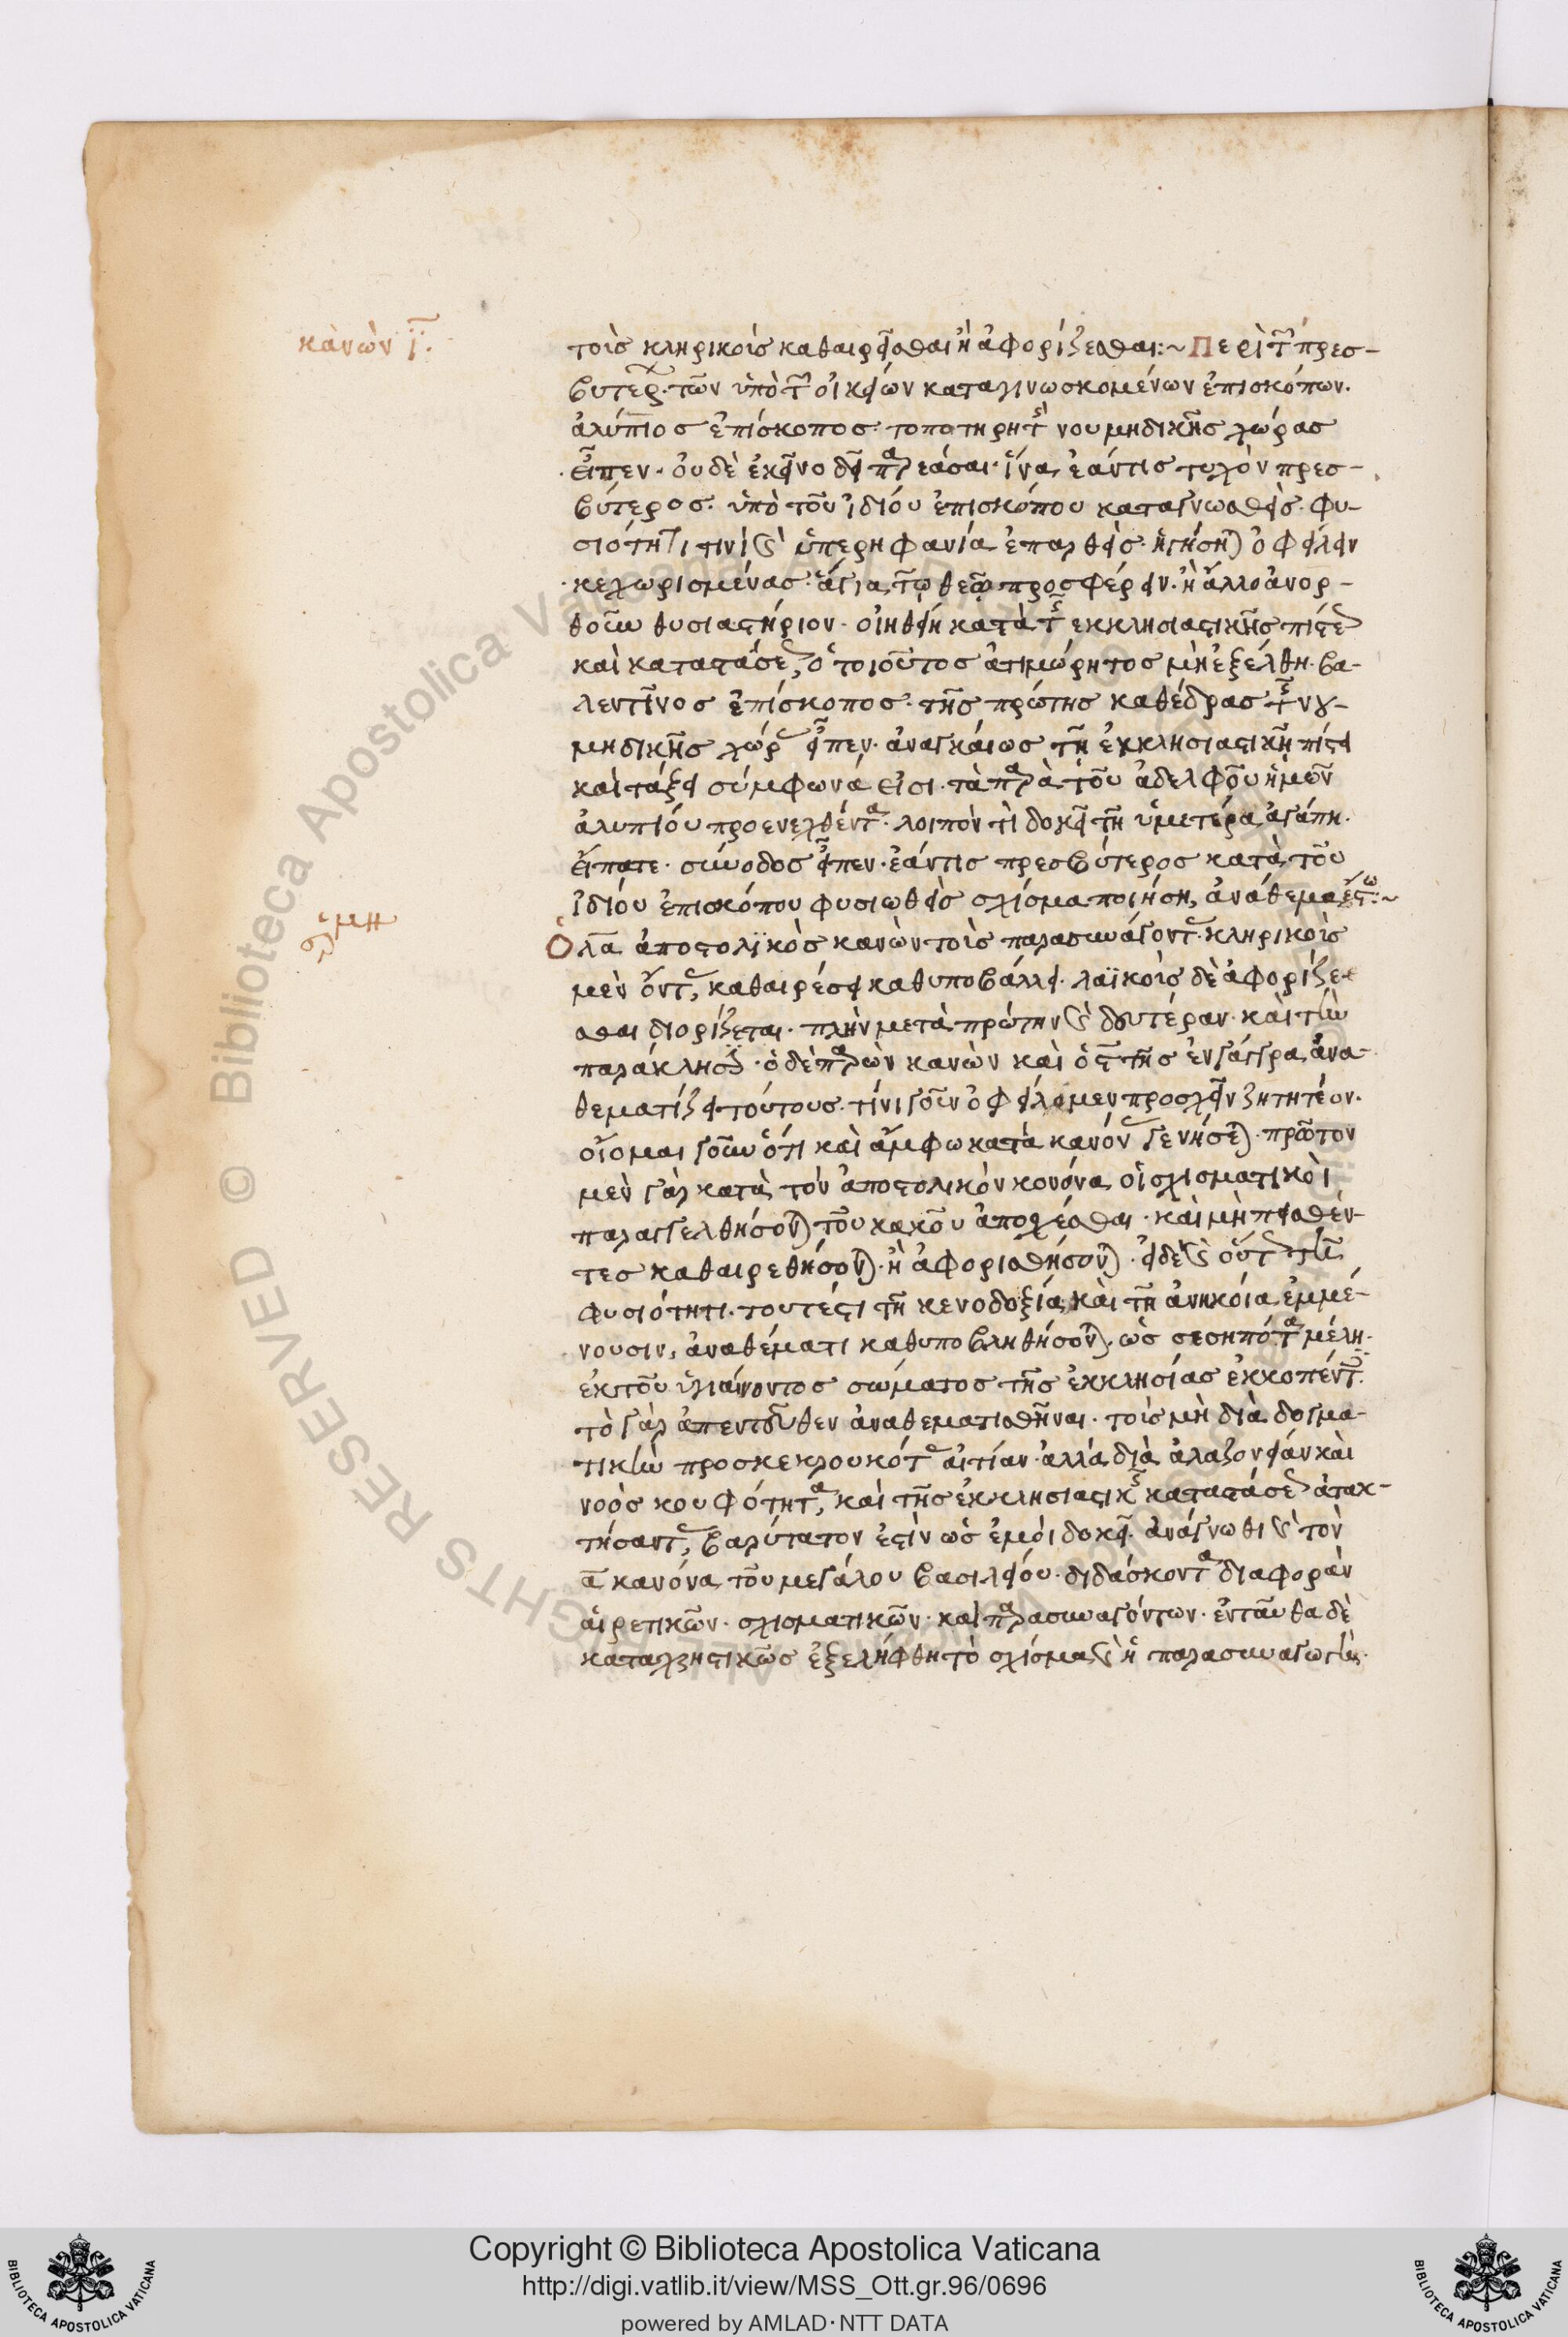 κανὼν ι̅:
τοὶς κληρικοὶς καθαιρεῖσθαι ἢ ἀφορίζεσθαι:~ Περὶ τ῀ πρεσ-
βυτέρ. τῶν ὑπὸ τ῀ οἰκείων καταγινωσκομένων ἐπισκόπων.
ἀλύπιος ἐπίσκοπος τοποτηρητ῀ νουμηδικῆς χώρας
εἶπεν. οὐδὲ ἐκεῖνο δεῖ παρεάσαι. ἵνα ἐάντις τυχὸν πρεσ-
βύτερος. ὑπὸ τοῦ ἰδίου ἐπισκόπου καταγνωσθεὶς. φυ-
σιότητι τινὶ καὶ ὑπερηφανία ἐπαρθεὶς. ἡγήσηται ὀφείλειν
κεχωρισμένας. ἅγια τῶ θεῶ προσφέρειν. ἢ ἄλλο ἀνορ-
θοῦν θυσιαστήριον. οἰηθείη κατὰ τῆς ἐκκλησιαστικῆς πίστε
καὶ καταστάσε, ὁ τοιοῦτος ἀτιμώρητος μὴ ἐξέλθη. βα-
λεντῖνος ἐπίσκοπος. τῆς πρώτης καθέδρας τῆς νου-
μηδικῆς χώρ εἶπεν. ἀναγκαίως τῆ ἐκκλησιαστικῆ πίστει
καὶ τάξει σύμφωνά εἰσι. τὰ παρὰ τοῦ ἀδελφοῦ ἡμῶν
ἀλυπίου προενεχθέντα. λοιπὸν τὶ δοκεῖ τῆ ὑμετέρα ἀγάπη.
εἴπατε. σύνοδος εἶπεν. ἐάντις πρεσβύτερος κατὰ τοῦ
ἰδίου ἐπισκόπου φυσιωθεὶς σχίσμα ποιήση, ἀνάθεμα ἔστω:~
Ὁ λα̅ ἀποστολϊκὸς κανὼν τοὶς παρασυνάγοντ. κληρικοὶς
μὲν ὄντ, καθαιρέσει καθυποβάλλει. λαϊκοὶς δὲ ἀφορίζε-
σθαι διορίζεται. πλὴν μετὰ πρώτην καὶ δευτέραν. καὶ τ῀
παράκλησιν. ὁ δὲ παρὼν κανὼν καὶ ὁ ϛ̅ τῆς ἐν γάγγρα, ἀνα-
θεματίζει τούτους. τίνι γοῦν ὀφείλομεν προσχεῖν ζητητέον.
οἶομαι γοῦν ὅτι καὶ ἄμφω κατὰ κανόν γενήσεται. πρῶτον
μὲν γὰρ κατὰ τὸν ἀποστολικὸν κονόνα οἱ σχισματικοὶ
παραγγελθήσονται τοῦ κακοῦ ἀποσχέσθαι. καὶ μὴ πεισθέν-
τες καθαιρεθήσονται. ἢ ἀφορισθήσονται. εἰ δὲ καὶ οὕτ τῆ
φυσιότητι. τουτέστι τῆ κενοδοξία, καὶ τῆ ἀνηκοία ἐμμέ-
νουσιν, ἀναθέματι καθυποβληθήσονται. ὡς σεσηπότα μέλη.
ἐκ τοῦ ὑγιαίνοντος σώματος τῆς ἐκκλησίας ἐκκοπέντ.
τὸ γὰρ ἀπεντεῦθεν ἀναθεματισθῆναι. τοὶς μὴ διὰ δογμα-
τικὴν προσκεκρουκότ αἰτίαν. ἀλλὰ διὰ ἀλαζονείαν καὶ
νοὸς κουφότητα, καὶ τῆς ἐκκλησιαστικῆς καταστάσε ἀτακ-
τήσαντ, βαρύτατον ἐστὶν ὡς ἐμοὶ δοκεῖ. ἀνάγνωθι καὶ τὸν
α̅ κανόνα τοῦ μεγάλου βασιλείου. διδάσκοντα διαφορὰν
αἱρετικῶν. σχισματικῶν. καὶ παρασυναγόντων. ἐνταῦθα δὲ
καταχρηστικῶς ἐξελήφθη τὸ σχίσμα καὶ ἡ παρασυναγωγή.